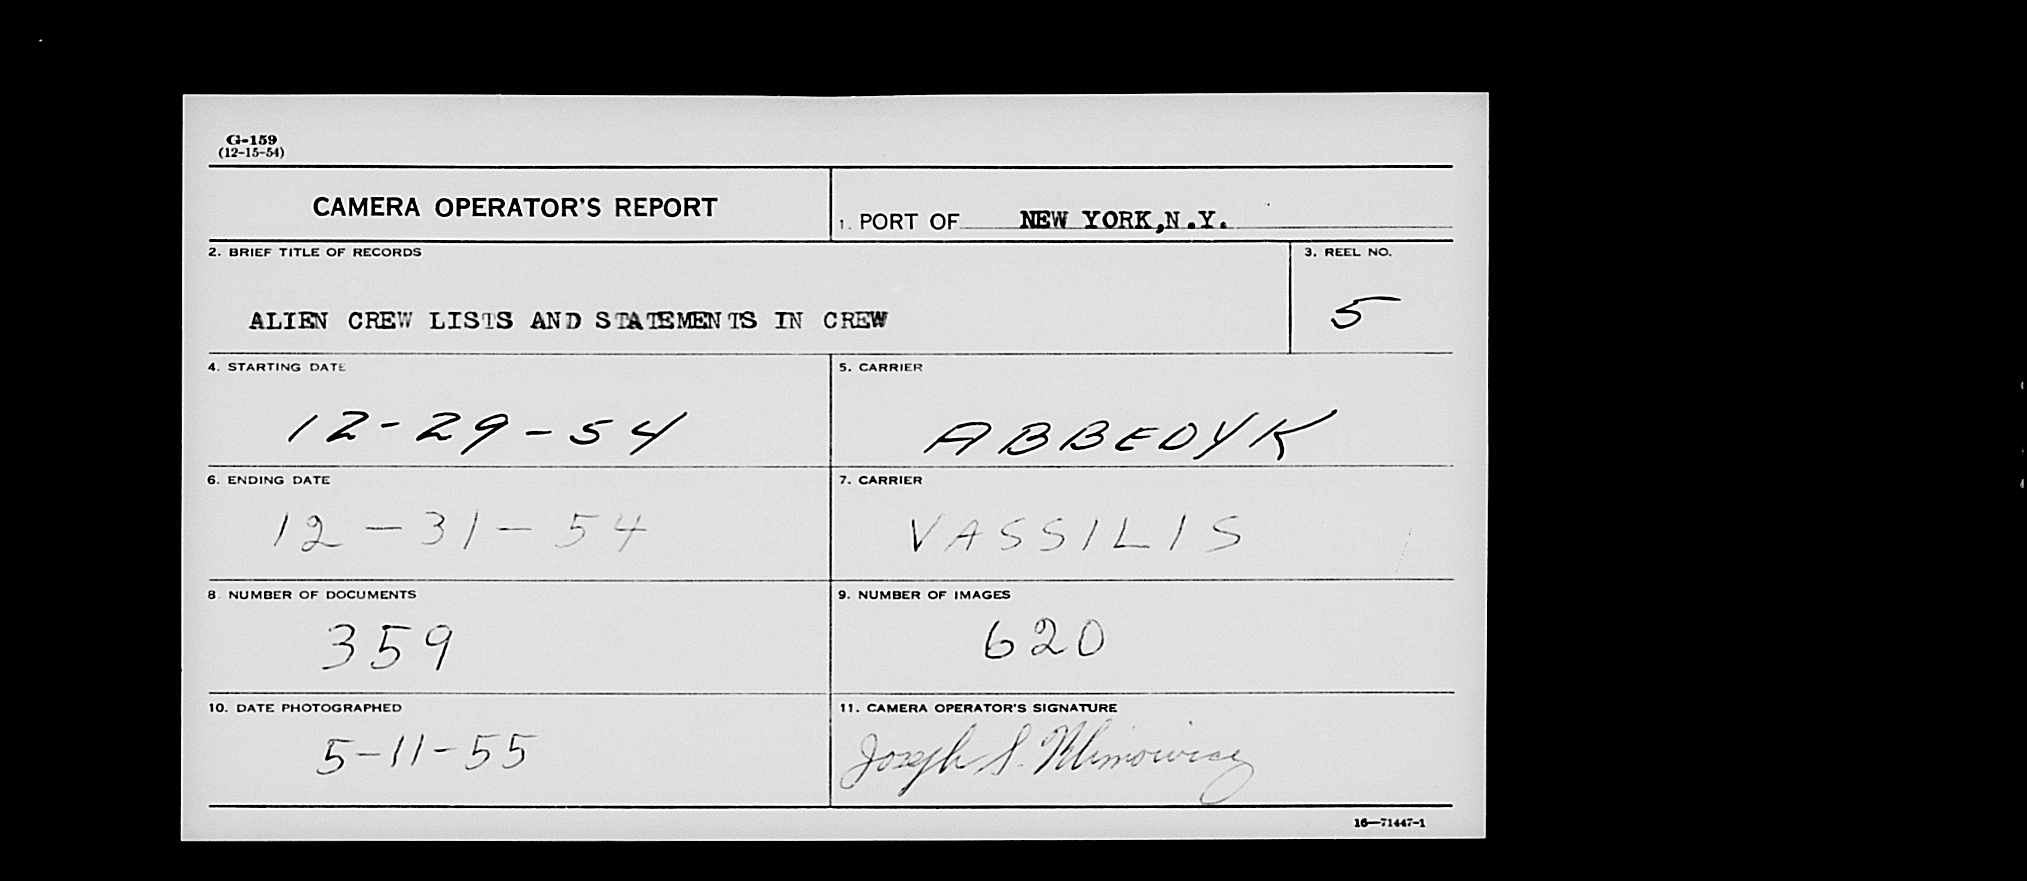 G-159
(12-15-54)
CAMERA OPERATOR'S REPORT
1. PORT OF NEW YORK,N.Y.
2. BRIEF TITLE OF RECORDS
ALIEN CREW LISTS AND STATEMENTS IN CREW
3. REEL NO.
5
4. STARTING DATE
12-29-54
5. CARRIER
ABBEDYK
6. ENDING DATE
12-31-54
7. CARRIER
VASSILIS
8. NUMBER OF DOCUMENTS
359
9. NUMBER OF IMAGES
620
10. DATE PHOTOGRAPHED
5-11-55
11. CAMERA OPERATOR'S SIGNATURE
Joseph S.
16—71447-1